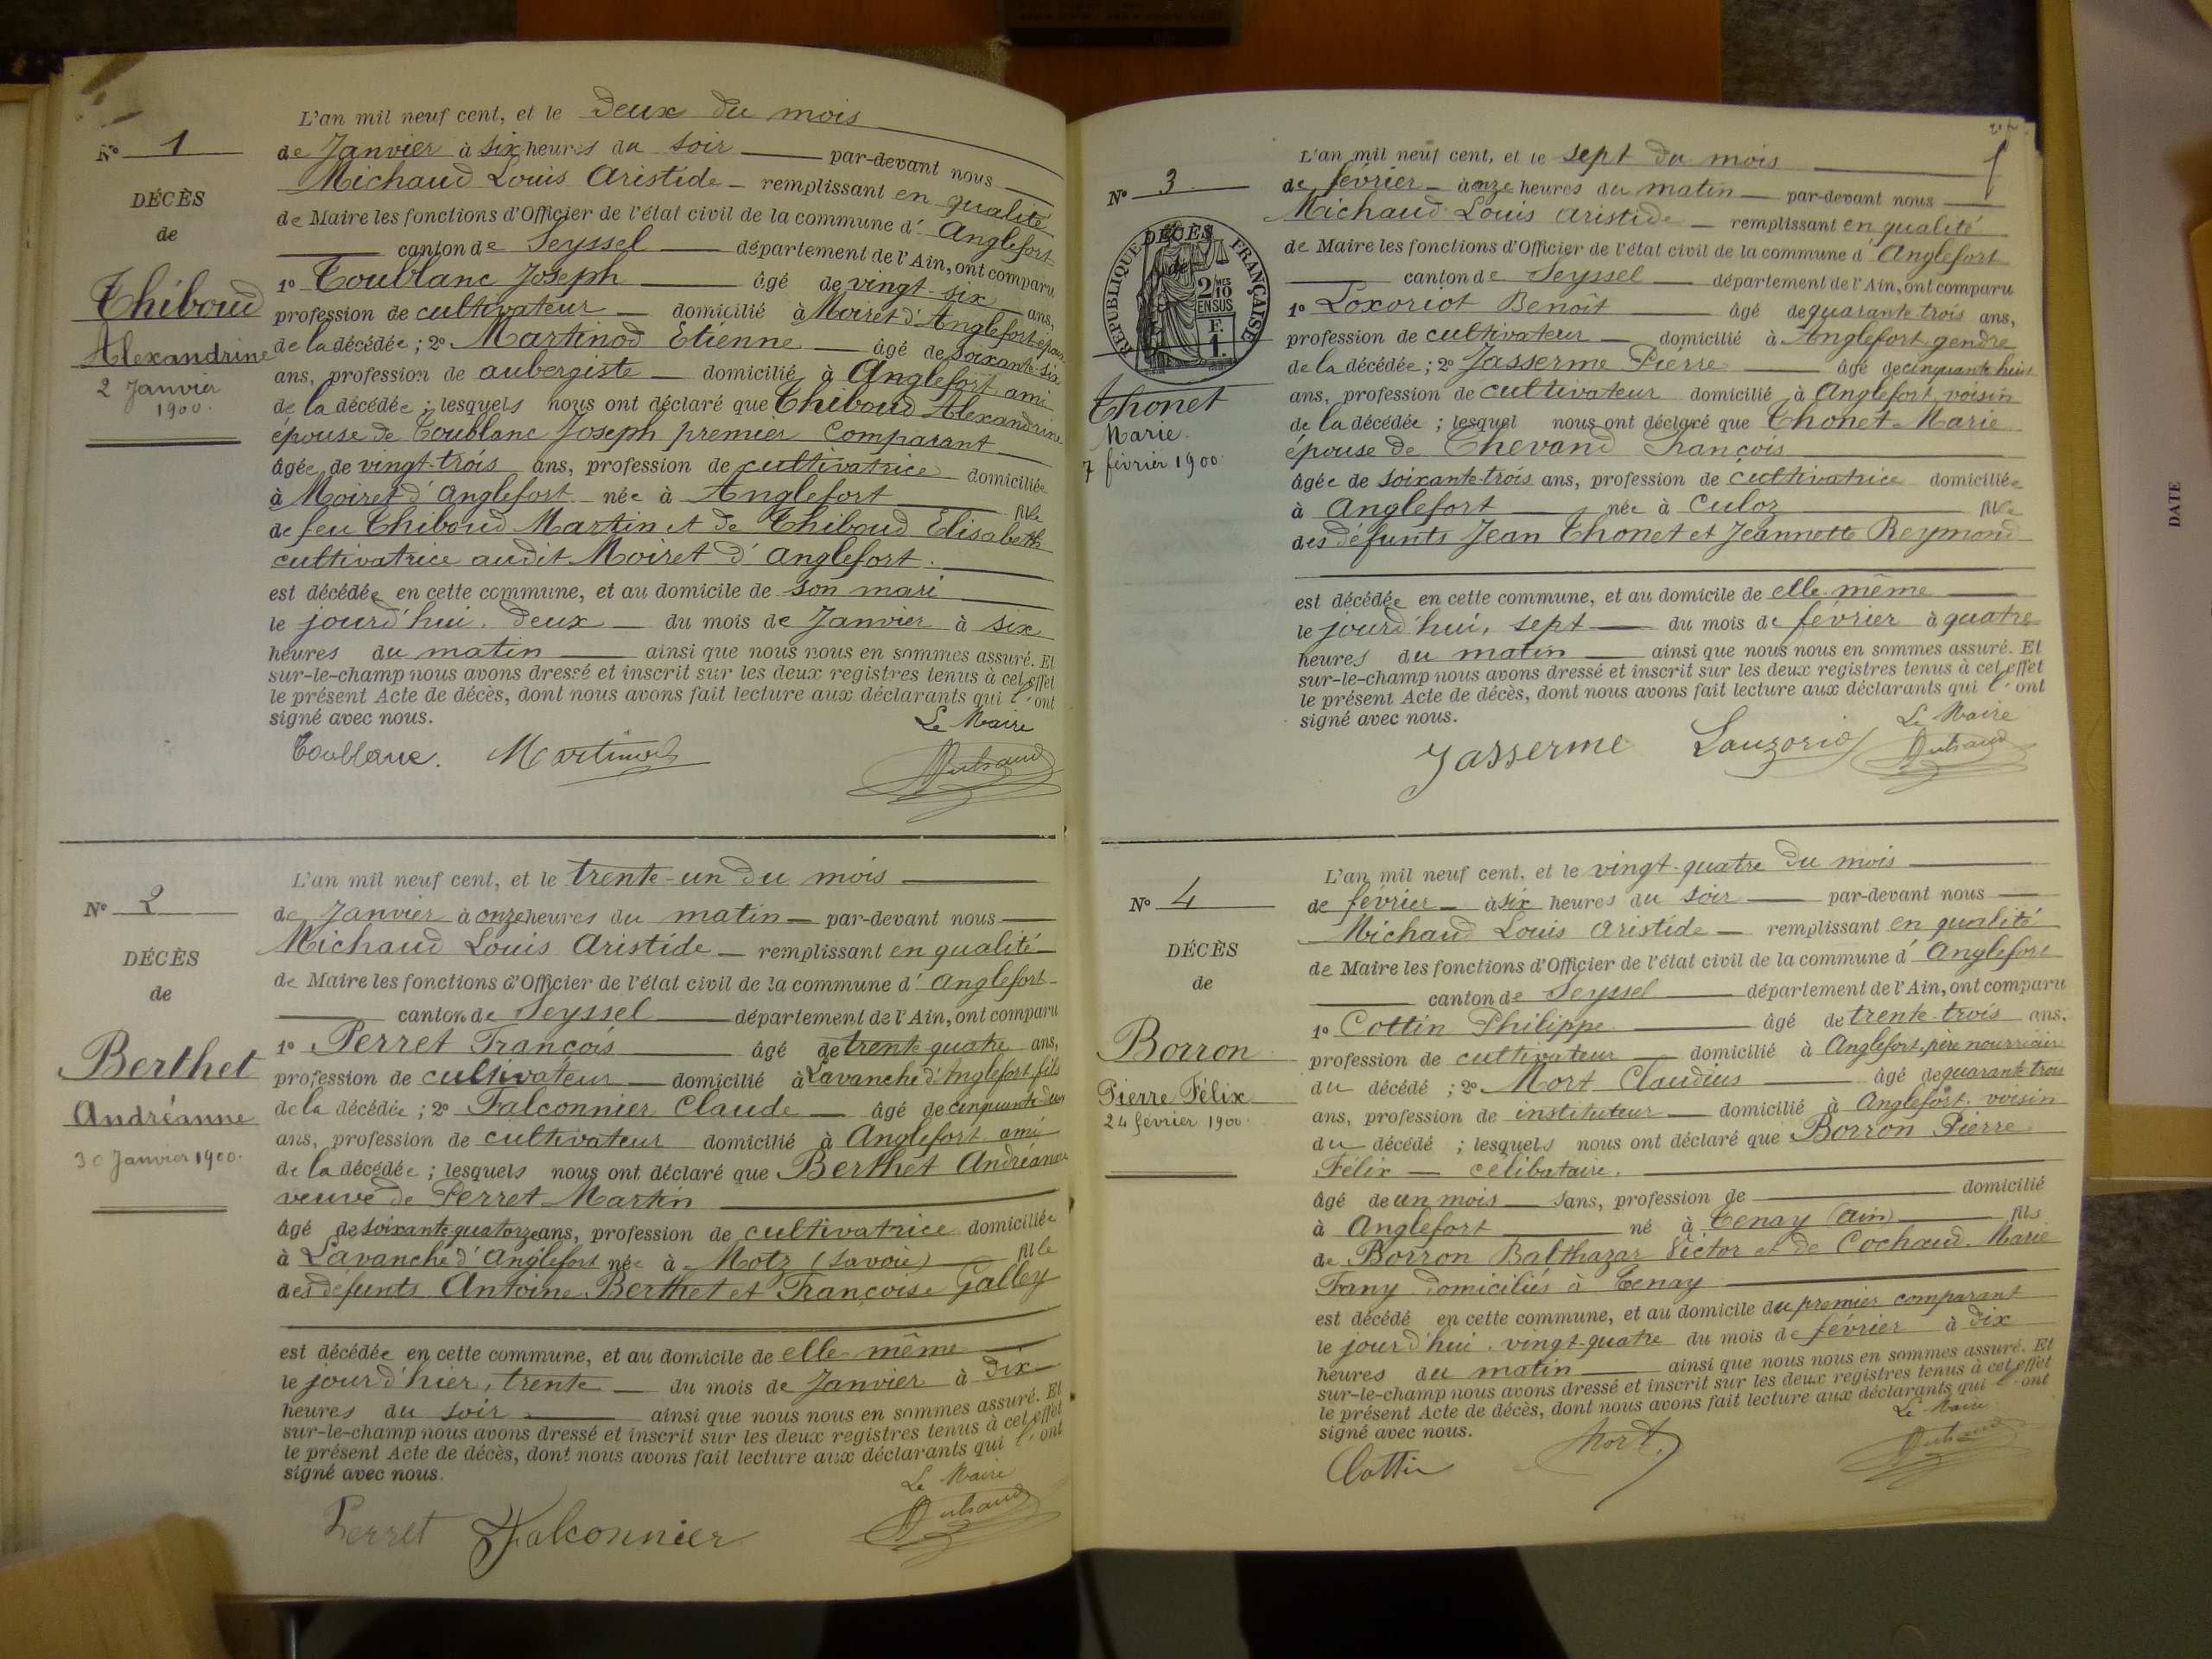 N° 1
DÉCÈS
de
Thiboud
Alexandrine
2 Janvier
1900.
L'an mil neuf cent, et le deux du mois
de Janvier à six heures du soir par-devant nous
Michaud Louis Aristide remplissant en qualité
de Maire les fonctions d'Officier de l'état civil de la commune d' Anglefort
canton de Seyssel département de l'Ain, ont comparu
1° Toublanc Joseph âgé de vingt-six ans,
profession de cultivateur domicilié à Moiret d'Anglefort époux
de la décédée ; 2° Martinod Etienne âgé de soixante-six
ans, profession de aubergiste domicilié à Anglefort ami
de la décédée ; lesquels nous ont déclaré que Thiboud Alexandrine
épouse de Toublanc Joseph premier comparant
âgée de vingt-trois ans, profession de cultivatrice domiciliée
à Moiret d'Anglefort née à Anglefort fille
de feu Thiboud Martin et de Thiboud Elisabeth
cultivatrice audit Moiret d'Anglefort.
est décédée en cette commune, et au domicile de son mari
le jourd'hui. deux du mois de Janvier à six
heures du matin ainsi que nous nous en sommes assuré. Et
sur-le-champ nous avons dressé et inscrit sur les deux registres tenus à cet effet
le présent Acte de décès, dont nous avons fait lecture aux déclarants qui l'ont
signé avec nous.
Le Maire
Toublanc. Martinod
N° 2
DÉCÈS
de
Berthet
Andréanne
30 Janvier 1900.
L'an mil neuf cent, et le trente-un du mois
de Janvier à onze heures du matin par-devant nous
Michaud Louis Aristide remplissant en qualité
de Maire les fonctions d'Officier de l'état civil de la commune d' Anglefort
canton de Seyssel département de l'Ain, ont comparu
1° Perret François âgé de trente quatre ans,
profession de cultivateur domicilié à Lavanche d'Anglefort fils
de la décédée ; 2° Falconnier Claude âgé de cinquante-deux
ans, profession de cultivateur domicilié à Anglefort ami
de la décédée ; lesquels nous ont déclaré que Berthet Andréanne
veuve de Perret Martin
âgé de soixante quatorze ans, profession de cultivatrice domiciliée
à Lavanche d'Anglefort née à Motz (Savoie) fille
des défunts Antoine Berthet et Françoise Galley
est décédée en cette commune, et au domicile de elle-même
le jour d'hier, trente du mois de Janvier à dix
heures du soir ainsi que nous nous en sommes assuré. Et
sur-le-champ nous avons dressé et inscrit sur les deux registres tenus à cet effet
le présent Acte de décès, dont nous avons fait lecture aux déclarants qui l'ont
signé avec nous.
Le Maire
Perret Falconnier
N° 3
DÉCÈS
de
RÉPUBLIQUE FRANÇAISE
2 MES
10
EN SUS
F.
1.
Thonet
Marie.
7 février 1900.
L'an mil neuf cent, et le sept du mois
de février à onze heures du matin par-devant nous
Michaud Louis Aristide remplissant en qualité
de Maire les fonctions d'Officier de l'état civil de la commune d' Anglefort
canton de Seyssel département de l'Ain, ont comparu
1° Loxoriot Benoît âgé de quarante trois ans,
profession de cultivateur domicilié à Anglefort gendre
de la décédée ; 2° Jasserme Pierre âgé de cinquante huit
ans, profession de cultivateur domicilié à Anglefort voisin
de la décédée ; lesquel nous ont déclaré que Thonet Marie
épouse de Chevand François
âgée de soixante-trois ans, profession de cultivatrice domiciliée
à Anglefort née à Culoz fille
des défunts Jean Thonet et Jeannette Reymond
est décédée en cette commune, et au domicile de elle-même
le jourd'hui, sept du mois de février à quatre
heures du matin ainsi que nous nous en sommes assuré. Et
sur-le-champ nous avons dressé et inscrit sur les deux registres tenus à cet effet
le présent Acte de décès, dont nous avons fait lecture aux déclarants qui l'ont
signé avec nous.
Le Maire
Jasserme
N° 4
DÉCÈS
de
Borron
Pierre Félix
24 février 1900.
L'an mil neuf cent, et le vingt-quatre du mois
de février à six heures du soir par-devant nous
Michaud Louis Aristide remplissant en qualité
de Maire les fonctions d'Officier de l'état civil de la commune d' Anglefort
canton de Seyssel département de l'Ain, ont comparu
1° Cottin Philippe âgé de trente-trois ans,
profession de cultivateur domicilié à Anglefort, père nourricier
du décédé ; 2° Mort Claudius âgé de quarante trois
ans, profession de instituteur domicilié à Anglefort. voisin
du décédé ; lesquels nous ont déclaré que Borron Pierre
Félix célibataire.
âgé de un mois sans, profession de domicilié
à Anglefort né à Tenay (Ain) fils
de Borron Balthazar Victor et de Cochaud Marie
Fany domiciliés à Tenay
est décédé en cette commune, et au domicile du premier comparant
le jourd'hui. vingt-quatre du mois de février à dix
heures du matin ainsi que nous nous en sommes assuré. Et
sur-le-champ nous avons dressé et inscrit sur les deux registres tenus à cet effet
le présent Acte de décès, dont nous avons fait lecture aux déclarants qui l'ont
signé avec nous.
Le Maire
Cottin Mort.
DATE